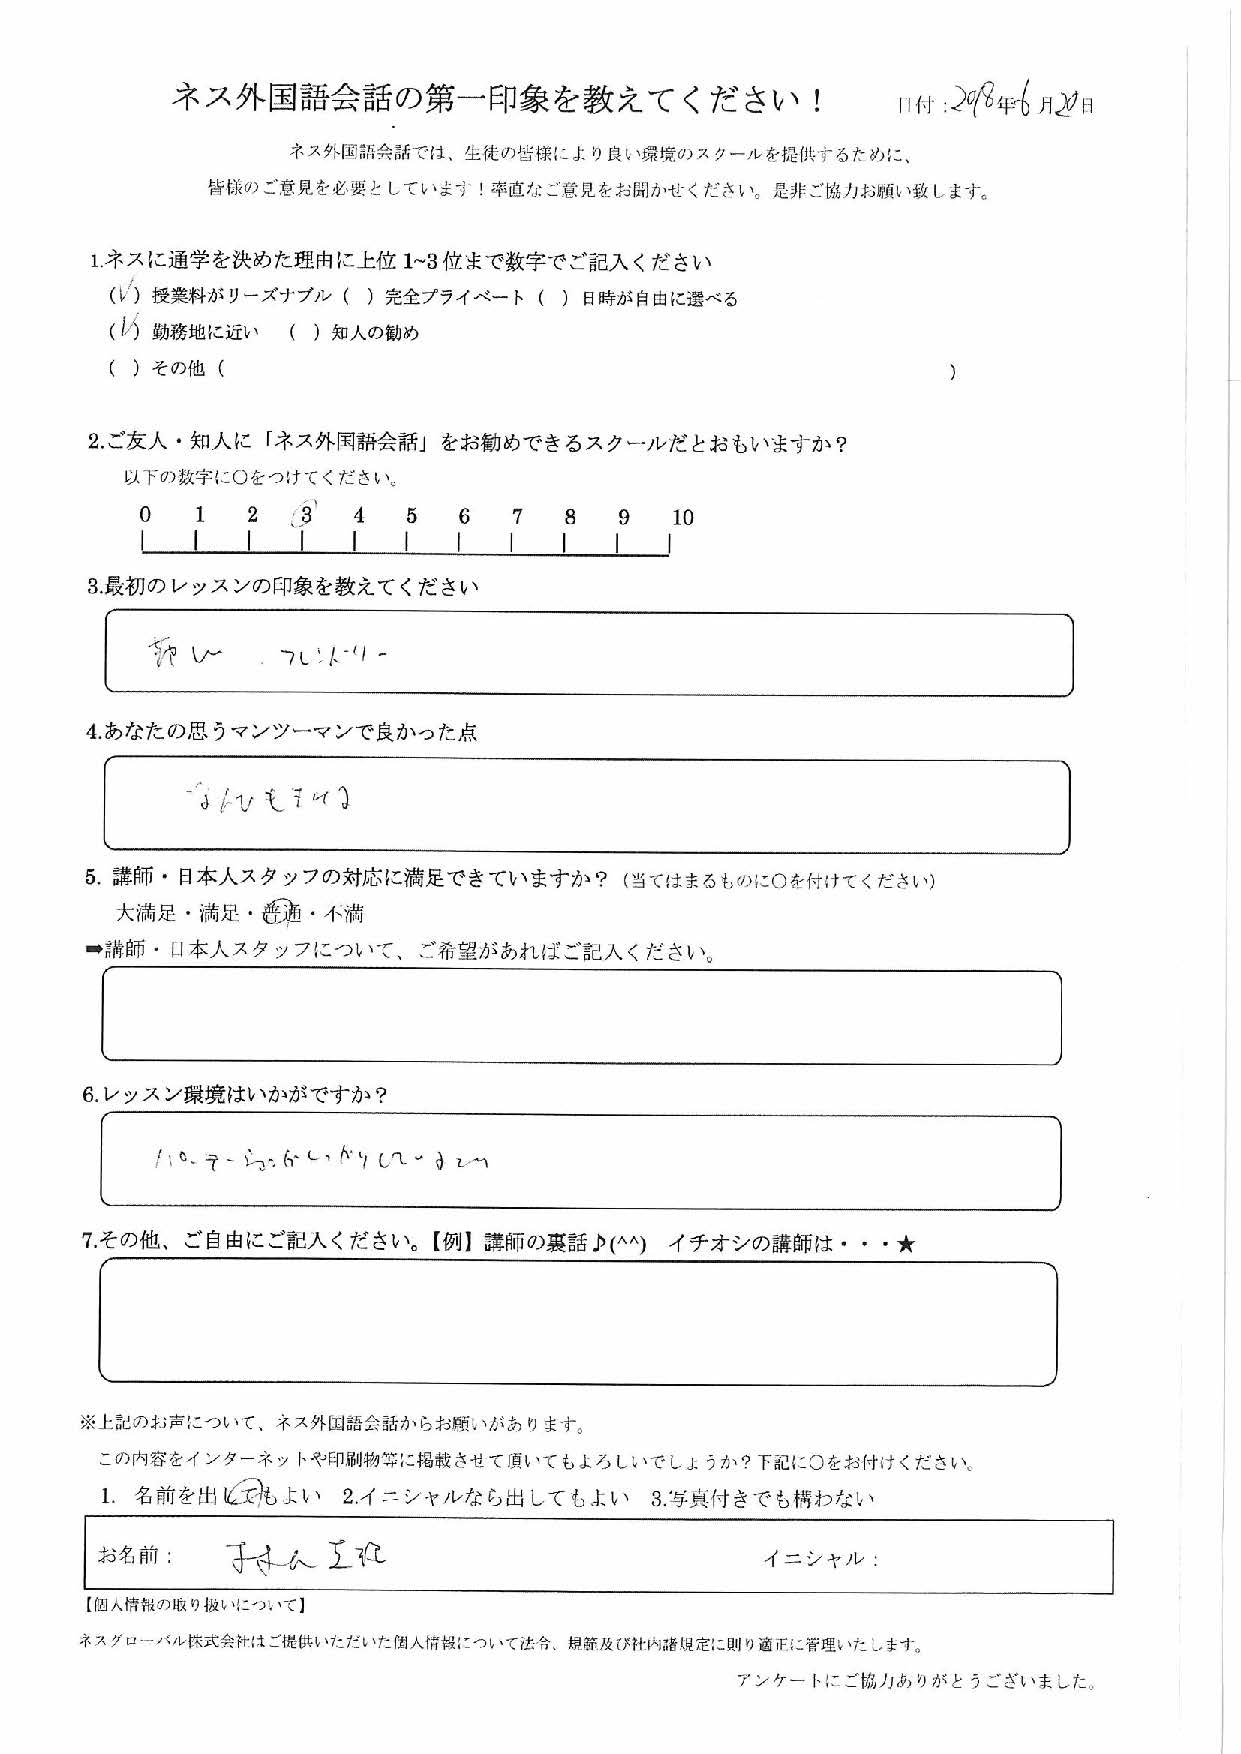 ネス外国語会話の第一印象を教えてください！ 日付：2018年6月20日
ネス外国語会話では、生徒の皆様により良い環境のスクールを提供するために、
皆様のご意見を必要としています！率直なご意見をお聞かせください。是非ご協力お願い致します。
1.ネスに通学を決めた理由に上位1~3位まで数字でご記入ください
(✓) 授業料がリーズナブル ( ) 完全プライベート ( ) 日時が自由に選べる
(✓) 勤務地に近い ( ) 知人の勧め
( ) その他 ( )
2.ご友人・知人に「ネス外国語会話」をお勧めできるスクールだとおもいますか？
以下の数字に〇をつけてください。
0 1 2 3 4 5 6 7 8 9 10
3.最初のレッスンの印象を教えてください
フレンドリー
4.あなたの思うマンツーマンで良かった点
なんでもきける
5. 講師・日本人スタッフの対応に満足できていますか？（当てはまるものに〇を付けてください）
大満足・満足・普通・不満
➡講師・日本人スタッフについて、ご希望があればご記入ください。
6.レッスン環境はいかがですか？
7.その他、ご自由にご記入ください。【例】講師の裏話♪(^^) イチオシの講師は・・・★
※上記のお声について、ネス外国語会話からお願いがあります。
この内容をインターネットや印刷物等に掲載させて頂いてもよろしいでしょうか？下記に〇をお付けください。
1. 名前を出してもよい 2.イニシャルなら出してもよい 3.写真付きでも構わない
お名前： イニシャル：
【個人情報の取り扱いについて】
ネスグローバル株式会社はご提供いただいた個人情報について法令、規範及び社内諸規定に則り適正に管理いたします。
アンケートにご協力ありがとうございました。